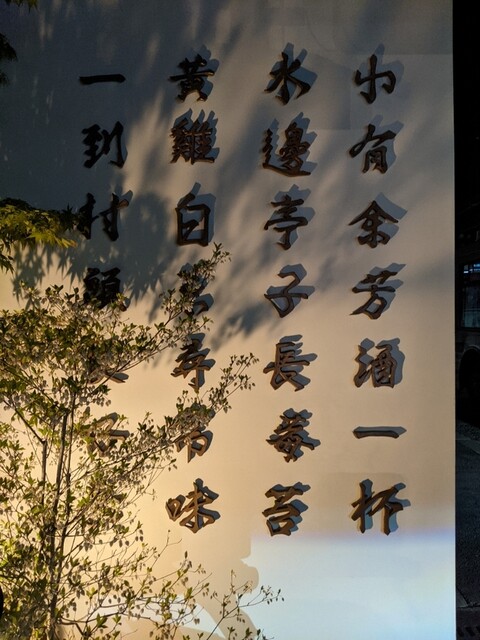 小有余芳酒一杯
水邊亭子長莓苔
黃雞白尋常味
一到村頭